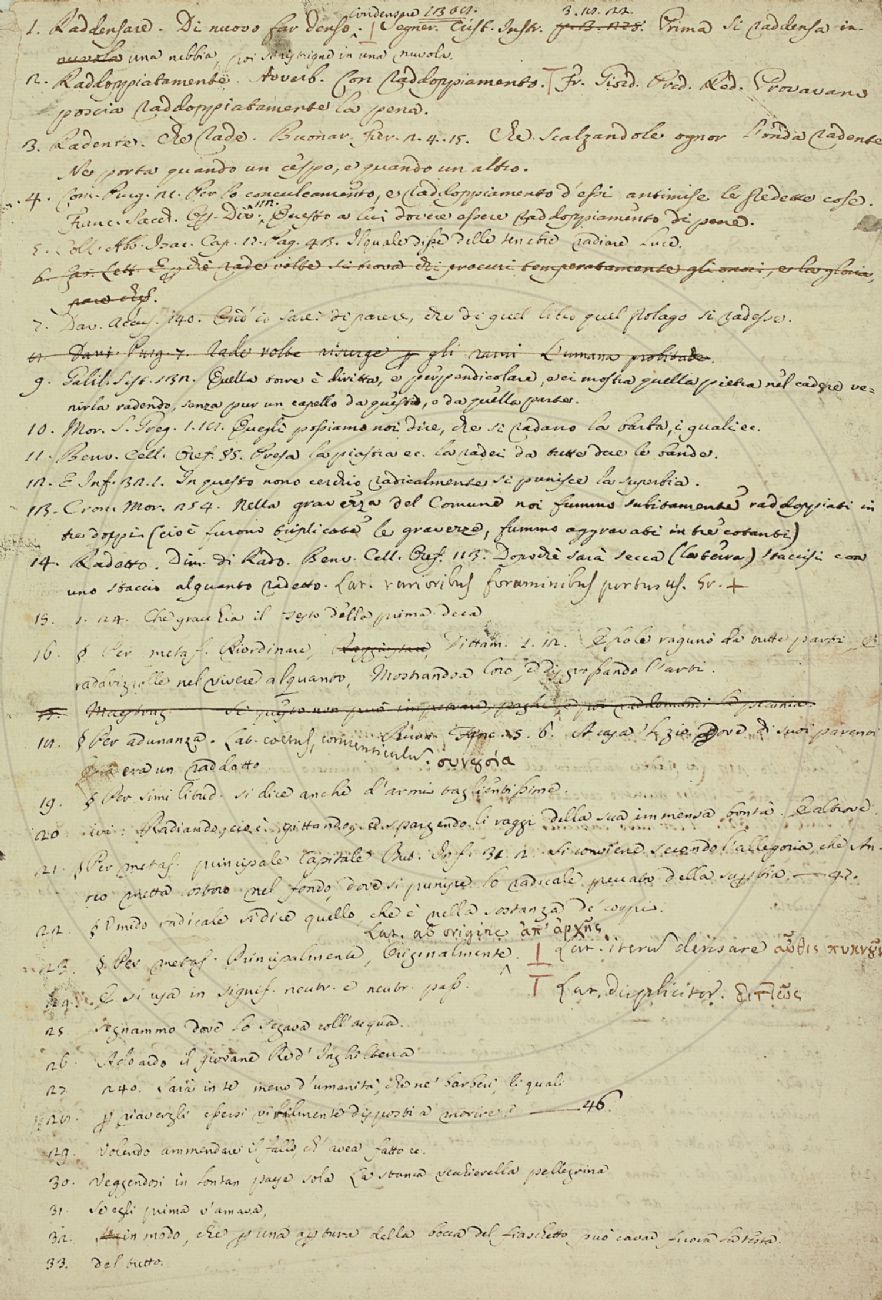 Condensare
3. 12. 22.
1. Raddensare. Di nuovo far denso. Segner. Crist. Instr. Prima si raddensa in
nuvola una nebbia, poi si ristrigne in una nuvola.
2. Raddoppiatamente. Avverb. Con raddoppiamento. Fr. Giord. Pred. Red. Provavano
poscia raddoppiatamente la pena.
3. Radente. Che rade. Buonar. Fier. 2. 4. 15. Che scalzandole ognor l'onda radente
Ne porta quando un cespo, e quando un altro.
4. Com. Purg. 21. Per lo conculcamento, e raddoppiamento d'essi antimise le predette cose.
Franc. Sacch. Op. Div. Questo a lui dovere essere raddoppiamento di pene.
5. Coll. Ab. Isac. Cap. 12. Pag. 43. Il quale disse delle tenebre radiare luce.
6. Lett. E perchè rade volte si trova chi procuri temperatamente gli onori, e la gloria,
7. Dav. Accus. 140. Onde io sarei di parere, che di quel libro quel prolago si radesse.
8. Dant. Purg. 7. Rade volte risurge per gli rami L'umana probitade.
9. Galil. Sist. 132. Quella torre è diritta, e perpendicolare, e ci mostra quella pietra nel cadere ve-
nirla radendo, senza pur un capello da questa, o da quella parte.
10. Mor. S. Greg. 1. 10. Quegli possiamo noi dire, che si radano la barba, i quali ec.
11. Benv. Cell. Oref. 85. Presa la piastra ec. la radei da tutte due le bande.
12. E Inf. 32. 1. In questo nono cerchio radicalmente si punisce la superbia.
13. Cron. Mor. 254. Nella gravezza del Comune noi fummo subitamente raddoppiati in
tre doppi (cioè furono triplicate le gravezze, fummo aggravati in tre cotanti)
14. Radetto. Dim. di Rado. Benv. Cell. Oref. 113. Dopochè sarà secca (la terra) staccisi con
uno staccio alquanto radetto. Lat. rarioribus foraminibus pertusus. Gr. +
15. 1. 24. Che gracchia il testo della prima deca
16. § Per metaf. Riordinare, Dittam. 1. 12. E pole ragunò da tutte parti, E
radirizzolle nel vivere alquanto, Mostrandoa loro, e digrossando l'arti.
17. Maestruz. Se questo non può impetrare, poghi, e poi raddomandi la pecunia.
18. § Per adunanza. Lat. coetus, conventiculus. συνεσία Buon. Tanc. 5. 6. A casa l' zio Dove di suoi parenti
era un raddotto.
19. § Per similitud. si dice anche d'armi taglientissime.
20. ivi: Radiando, cioè, gittando, e spargendo li raggi della sua immensa bontà. E altrove.
21. § Per metaf. principale Capitale But. Inf. 32. 2. Si conviene secondo l'allegoria, che An-
teo metta costoro nel fondo, dove si punisce lo radicale peccato della superbia. — 47.
22. § Umido radicale si dice quello, che è nella sostanza de' corpi.
Lat. ab origine ἀπ' ἀρχῆς
23. § Per metaf. Principalmente, Originalmente. ⊥ Lat. iterum densare αὖθις πυκνοῦν
24. E si usa in signif. neutr. e neutr. pass. T Lat. dupliciter. διττῶς
25 segnammo dove lo segava coll'acqua.
26. Adoardo il giovane Re d'Inghilterra
27. 240. Saria in te meno d'umanità, che ne' barberi, li quali
28. p riavergli essersi vitalmente disposti a morire? — 46.
29. volendo ammendare il fallo, ch'avea fatto ec.
30. veggendosi in lontan paese sola La stanca vecchierella pellegrina
31. Se egli prima v'amava,
32. in modo, che p una apertura della bocca del fiaschetto può cavar fuora la testa.
33. del tutto.